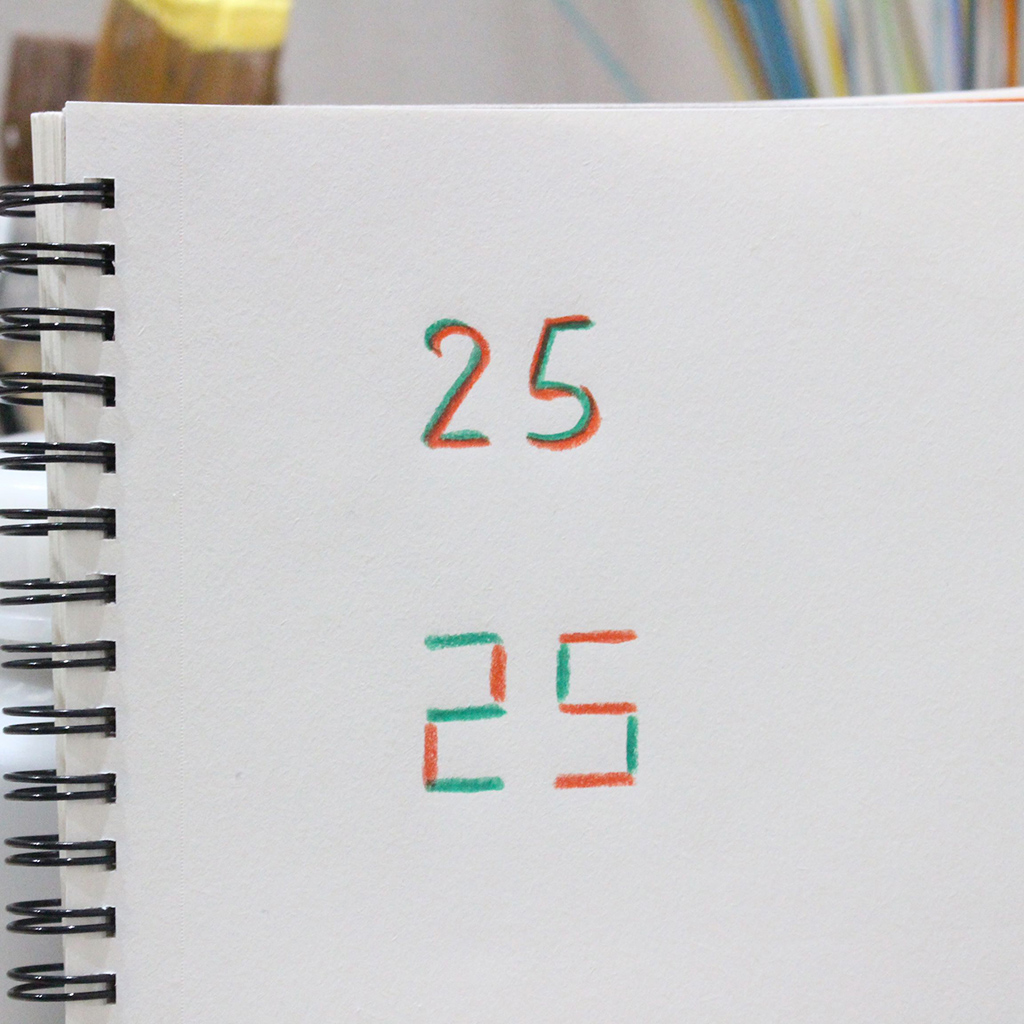 25
25